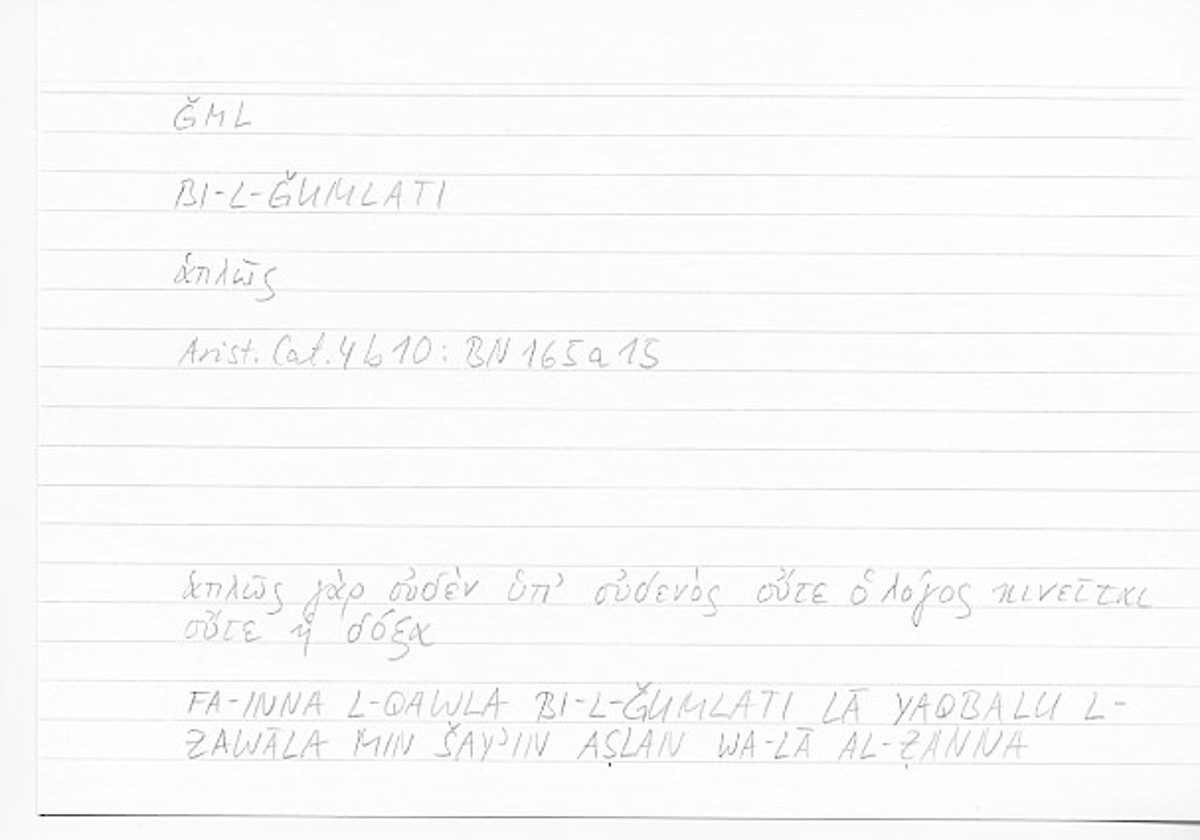 ǦML
BI-L-ǦUMLATI
ἁπλῶς
Arist. Cat. 4b10: BN 165a15
ἁπλῶς γὰρ οὐδὲν ὑπ’ οὐδενὸς οὔτε ὁ λόγος κινεῖται
οὔτε ἡ δόξα
FA-INNA L-QAWLA BI-L-ǦUMLATI LĀ YAQBALU L-
ZAWĀLA MIN ŠAYʾIN AṢLAN WA-LĀ AL-ẒANNA